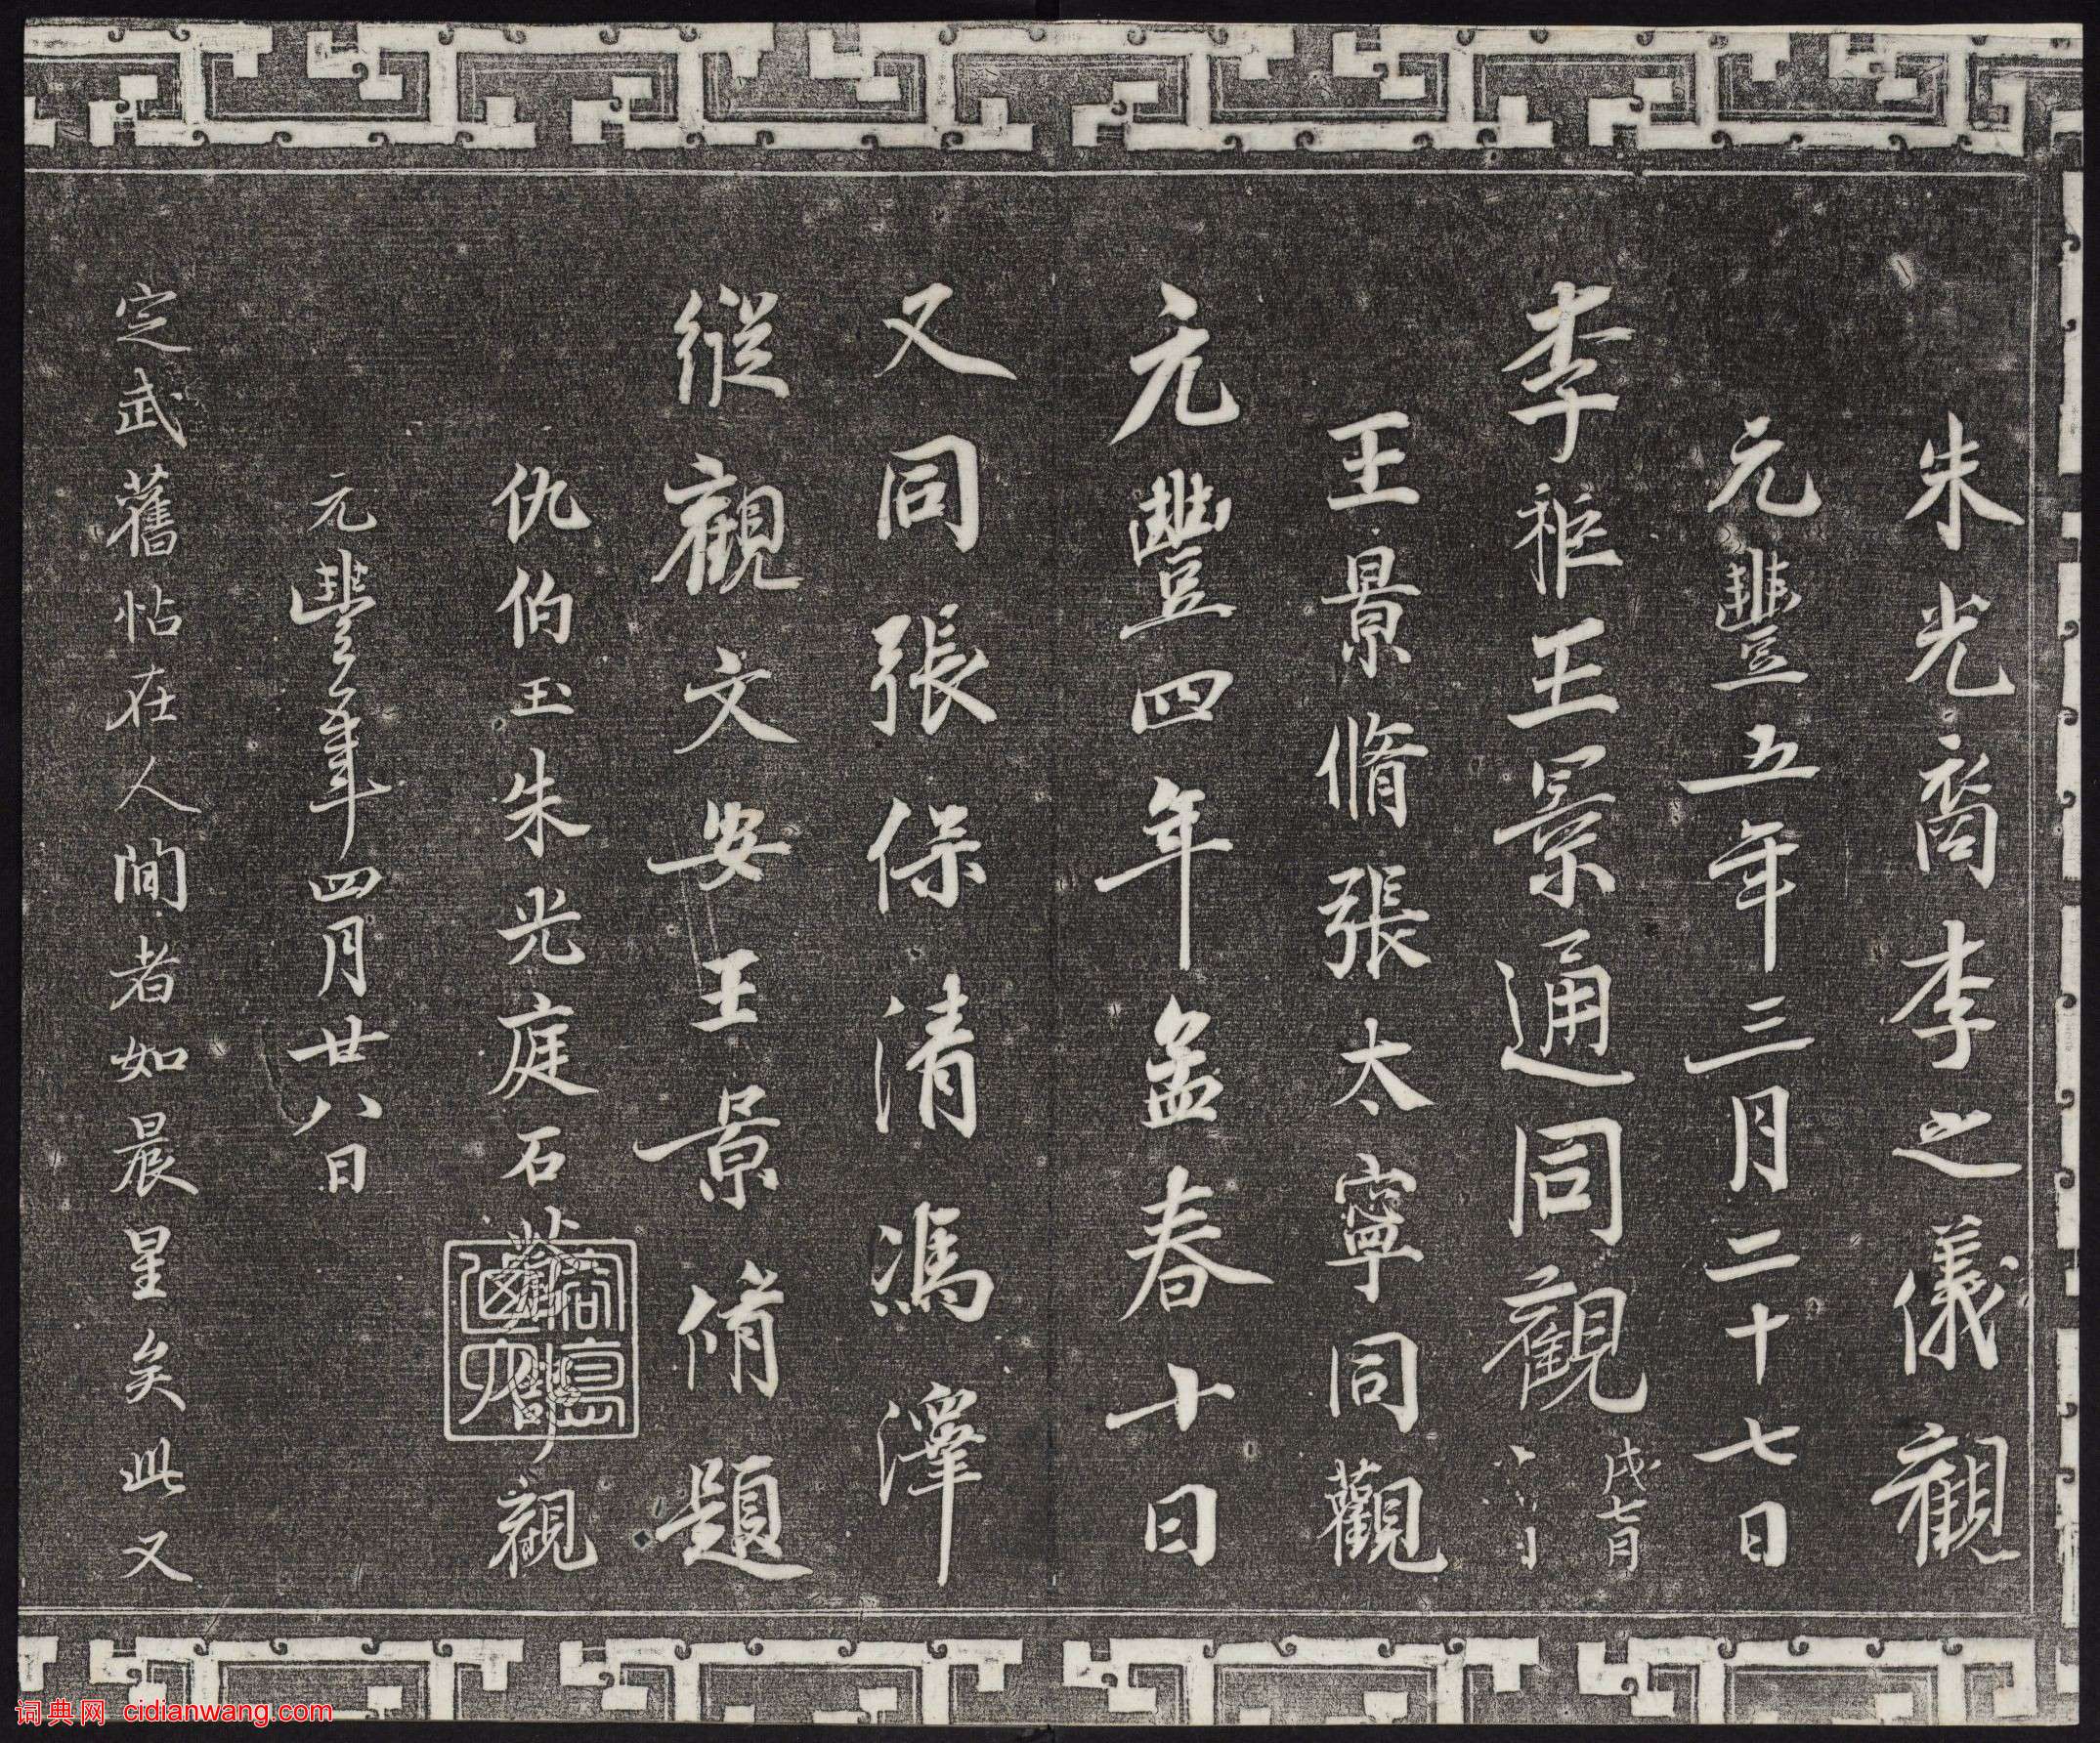 朱光裔李之儀觀
元豐五年三月二十七日
李秬王景通同觀
戌七月
王景脩張太寧同觀
元豐四年孟春十日
又同張保清馮澤
縱觀文安王景脩題
仇伯玉朱光庭石蒼舒觀
元豐年四月廿八日
定武舊帖在人間者如晨星矣此又
词典网 cidianwang.com